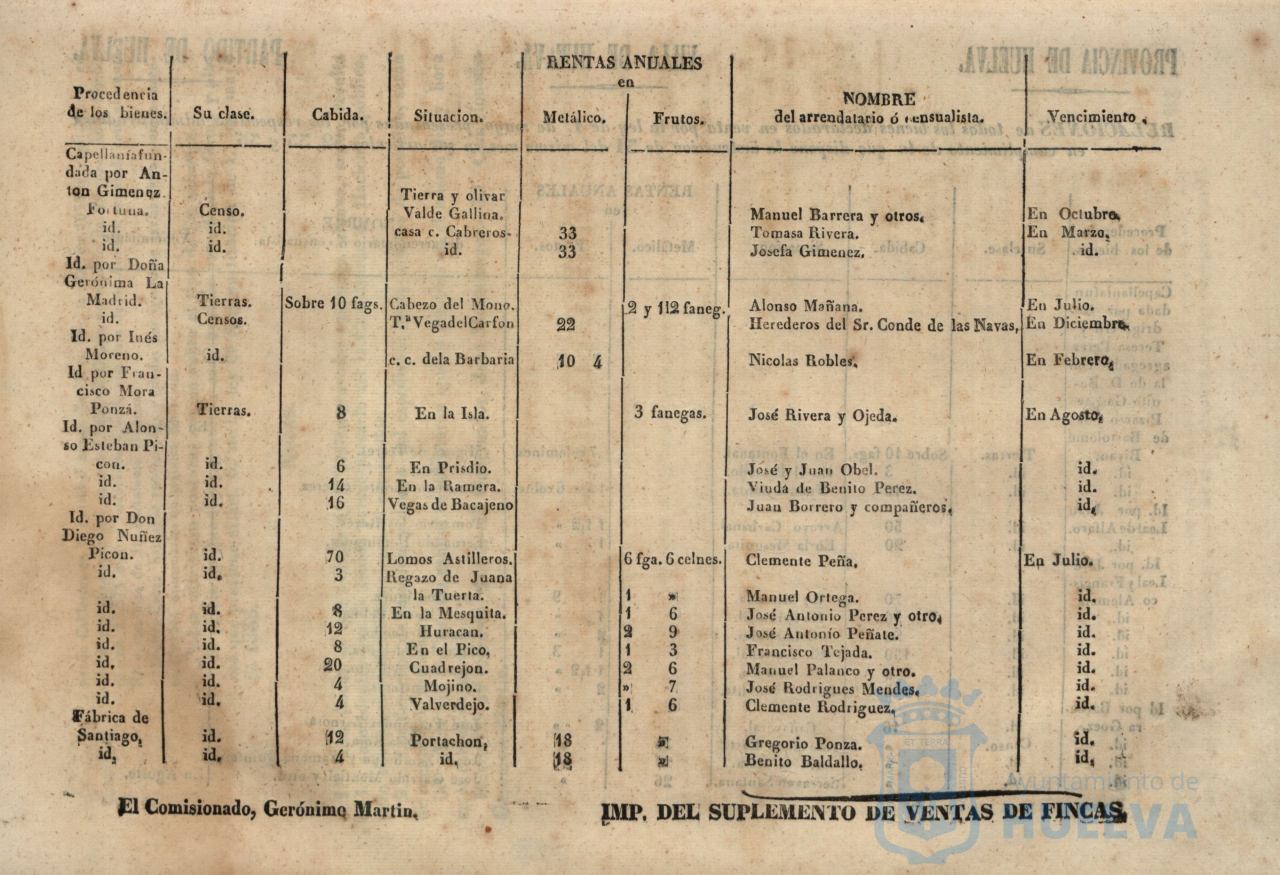 RENTAS ANUALES
en
Procedencia de los bienes. Su clase. Cabida. Situacion. Metálico. Frutos. NOMBRE del arrendatario ó censualista. Vencimiento.
Capellaníafun-
dada por An-
ton Gimenez Tierra y olivar
Fortuna. Censo. Valde Gallina. Manuel Barrera y otros. En Octubre.
id. id. casa c. Cabreros. 33 Tomasa Rivera. En Marzo.
id. id. id. 33 Josefa Gimenez. id.
Id. por Doña
Gerónima La
Madrid. Tierras. Sobre 10 fags. Cabezo del Mono. 2 y 1|2 faneg. Alonso Mañana. En Julio.
id. Censos. T.ª VegadelCarfon 22 Herederos del Sr. Conde de las Navas, En Diciembre.
Id. por Inés
Moreno. id. c. c. dela Barbaria 10 4 Nicolas Robles. En Febrero.
Id por Fran-
cisco Mora
Ponzá. Tierras. 8 En la Isla. 3 fanegas. José Rivera y Ojeda. En Agosto.
Id. por Alon-
so Esteban Pi-
con. id. 6 En Prisdio. José y Juan Obel. id.
id. id. 14 En la Ramera. Viuda de Benito Perez. id.
id. id. 16 Vegas de Bacajeno Juan Borrero y compañeros. id.
Id. por Don
Diego Nuñez
Picon. id. 70 Lomos Astilleros. 6 fga. 6 celnes. Clemente Peña. En Julio.
id. id. 3 Regazo de Juana
la Tuerta. 1 » Manuel Ortega. id.
id. id. 8 En la Mesquita. 1 6 José Antonio Perez y otro. id.
id. id. 12 Huracan. 2 9 José Antonío Peñate. id.
id. id. 8 En el Pico. 1 3 Francisco Tejada. id.
id. id. 20 Cuadrejon. 2 6 Manuel Palanco y otro. id.
id. id. 4 Mojino. » 7 José Rodrigues Mendes. id.
id. id. 4 Valverdejo. 1 6 Clemente Rodriguez. id.
Fábrica de
Santiago. id. 12 Portachon. 18 » Gregorio Ponza. id.
id. id. 4 id. 18 » Benito Baldallo. id.
El Comisionado, Gerónimo Martin. IMP. DEL SUPLEMENTO DE VENTAS DE FINCAS.
Ayuntamiento de
HUELVA